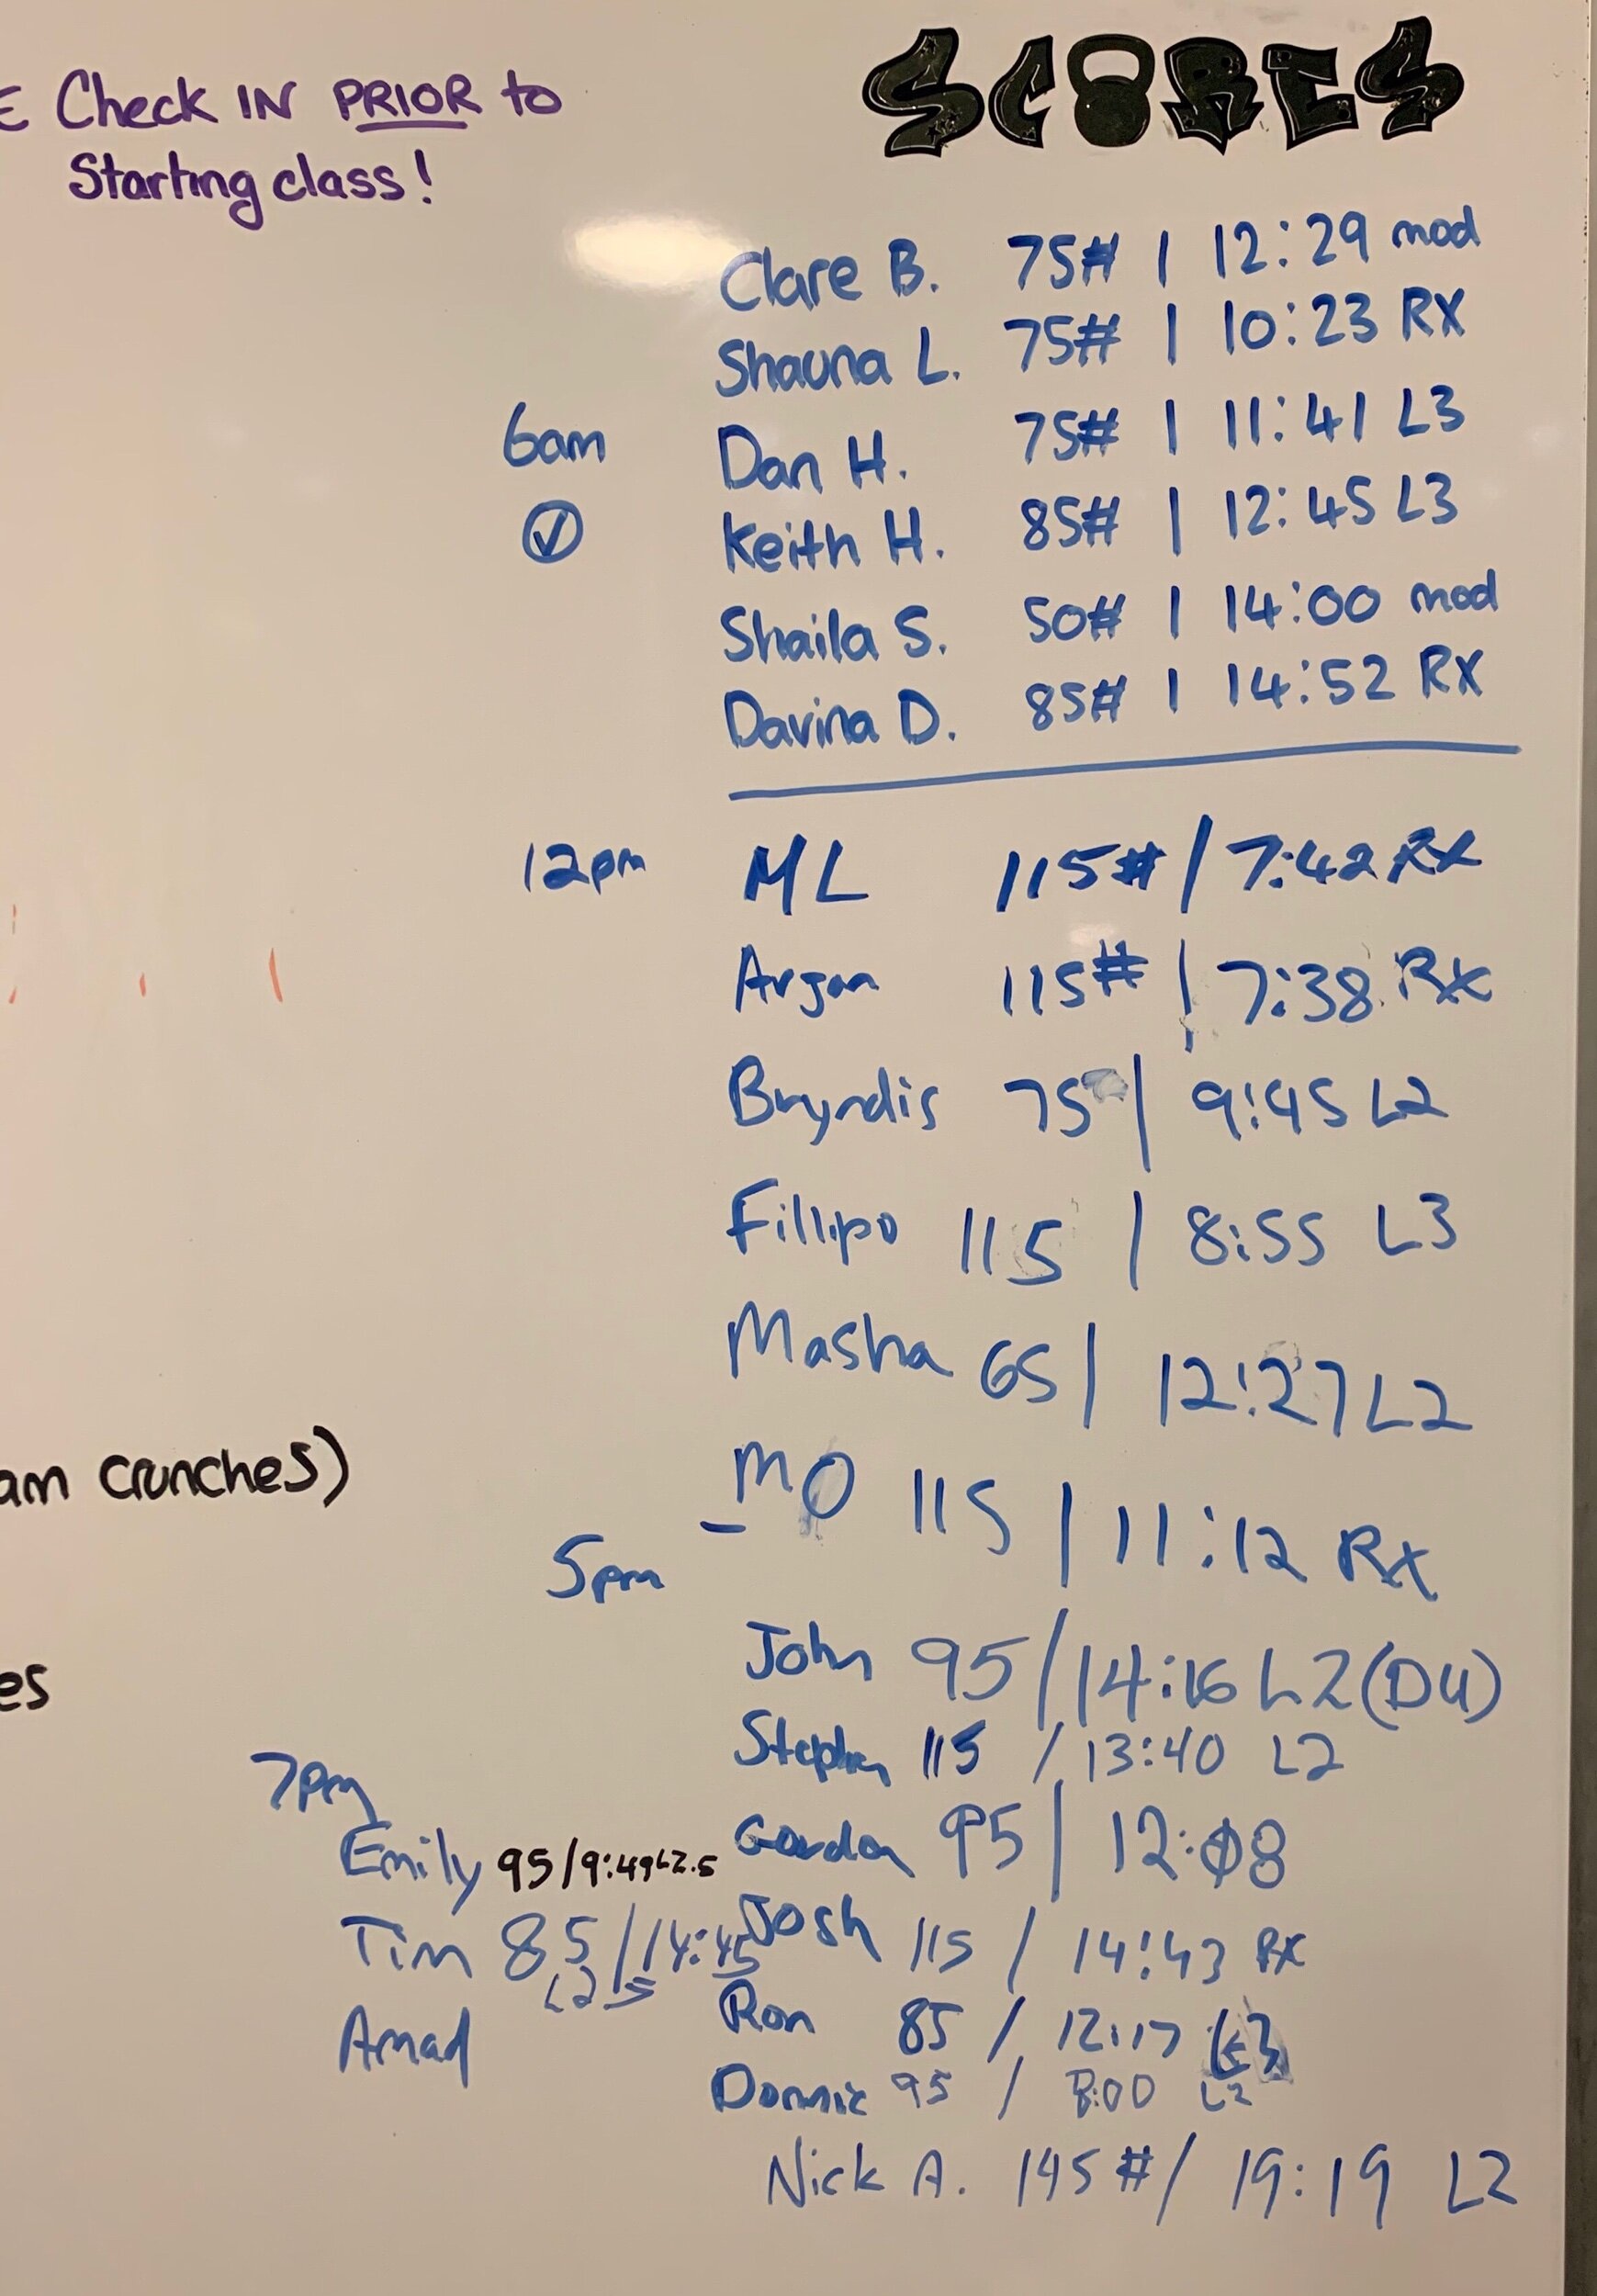 E Check IN PRIOR to
Starting class!
SCORES
Clare B. 75# | 12:29 mod
Shauna L. 75# | 10:23 RX
6am
Dan H. 75# | 11:41 L3
Keith H. 85# | 12:45 L3
Shaila S. 50# | 14:00 mod
Davina D. 85# | 14:52 RX
12pm ML 115# / 7:42 RX
Arjan 115# | 7:38 Rx
Bryndis 75 | 9:45 L2
Fillipo 115 | 8:55 L3
Masha 65 | 12:27 L2
MO 115 | 11:12 Rx
am crunches)
5pm
John 95/14:16 L2(DU)
es
Stephen 115 / 13:40 L2
Gordon 95 | 12:08
Josh 115 / 14:43 RX
Ron 85 / 12:17 L3
Donnie 95 / 8:00 L2
Nick A. 145 #/ 19:19 L2
7pm
Emily 95/9:49 L2.5
Tim 85/14:45
L2.5
Amad